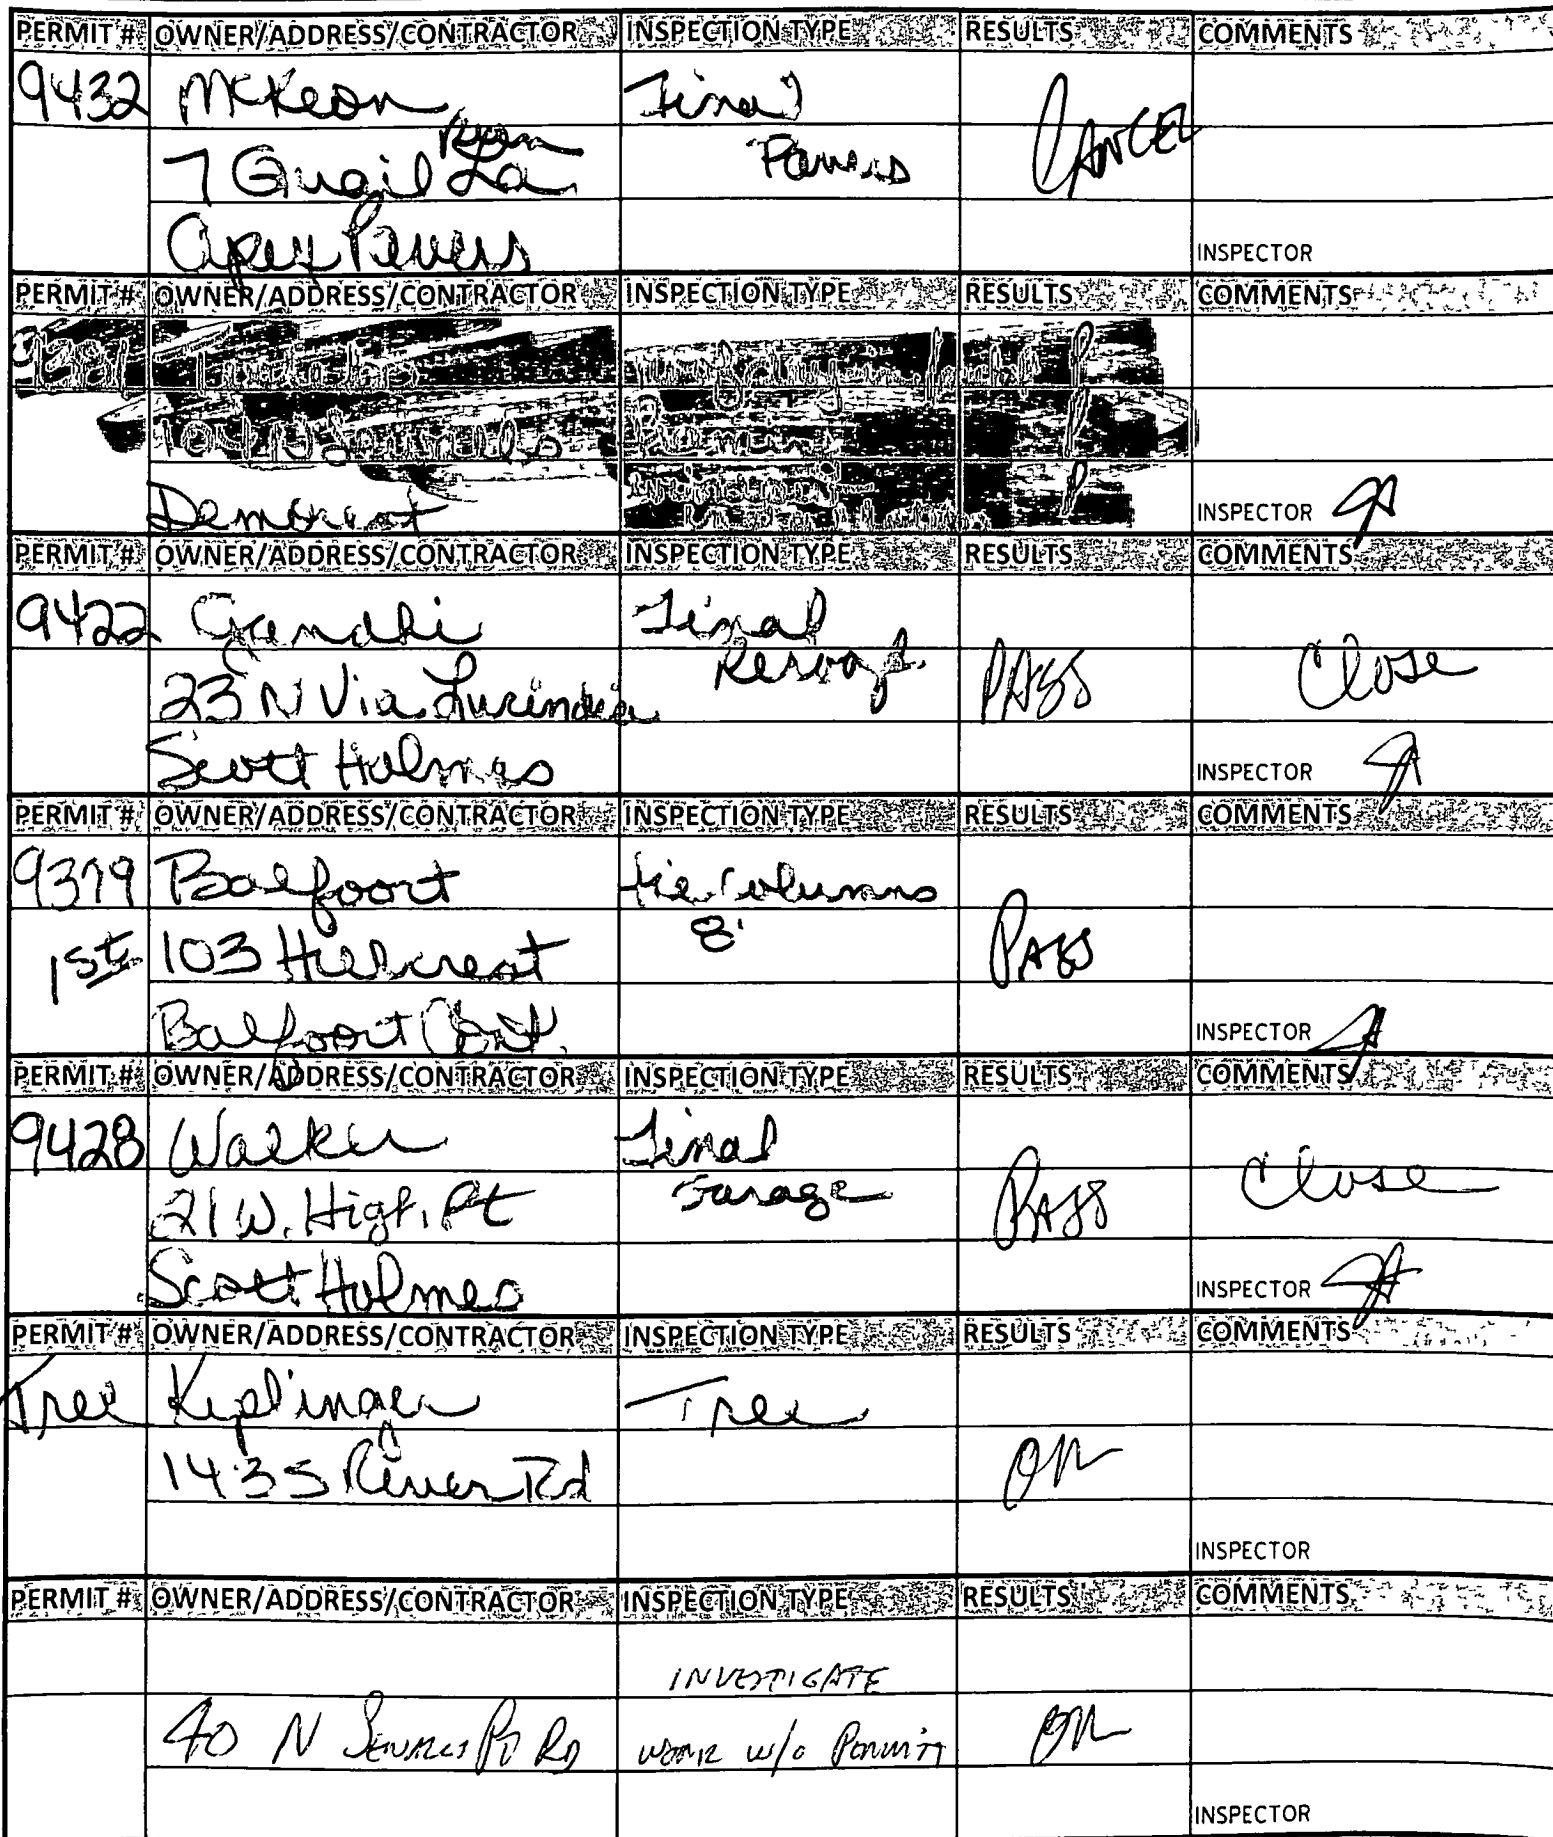 PERMIT # OWNER/ADDRESS/CONTRACTOR INSPECTION TYPE RESULTS COMMENTS
9432 McKeon Final
Ryan
7 Quail La Pavers CANCEL
Apex Pavers INSPECTOR
PERMIT # OWNER/ADDRESS/CONTRACTOR INSPECTION TYPE RESULTS COMMENTS
104 N Sewalls Framing P
Democrat P INSPECTOR
PERMIT # OWNER/ADDRESS/CONTRACTOR INSPECTION TYPE RESULTS COMMENTS
9422 Gandhi Final
23 N Via Lucindia PASS Close
Scott Holmes INSPECTOR
PERMIT # OWNER/ADDRESS/CONTRACTOR INSPECTION TYPE RESULTS COMMENTS
9379 Balfoort tie columns
1st 103 Hillcrest 8' PASS
Balfoort Const. INSPECTOR
PERMIT # OWNER/ADDRESS/CONTRACTOR INSPECTION TYPE RESULTS COMMENTS
9428 Walker Final
21 W. High Pt Garage PASS Close
Scott Holmes INSPECTOR
PERMIT # OWNER/ADDRESS/CONTRACTOR INSPECTION TYPE RESULTS COMMENTS
Tree Kiplinger Tree
143 S River Rd OK
INSPECTOR
PERMIT # OWNER/ADDRESS/CONTRACTOR INSPECTION TYPE RESULTS COMMENTS
INVESTIGATE
40 N SEWALLS PT RD WORK W/O PERMIT OK
INSPECTOR